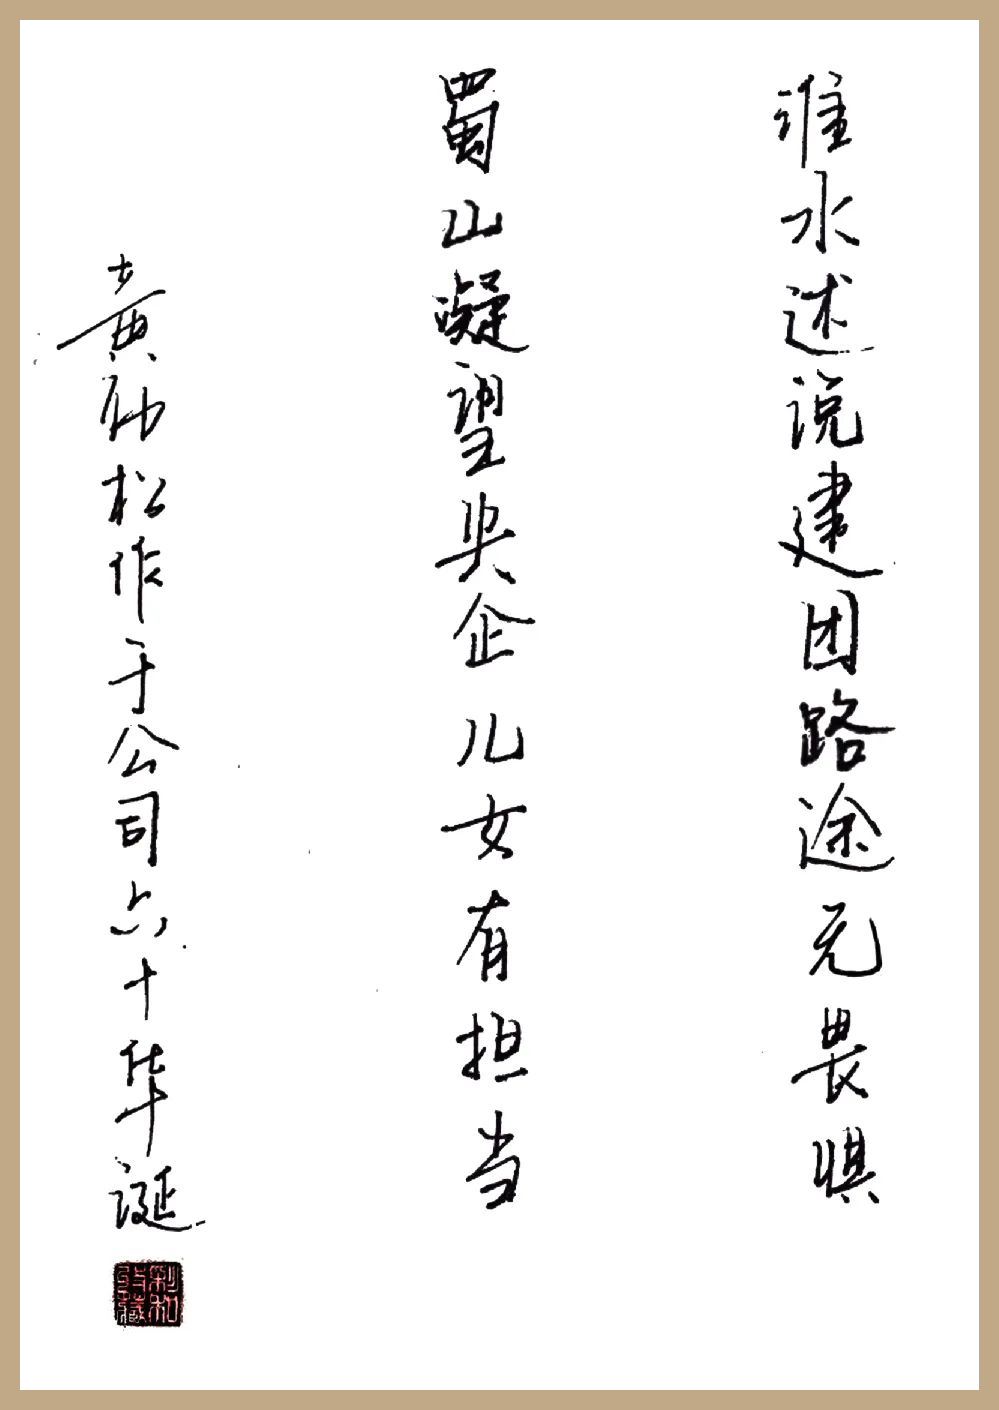 淮水述说建团路途无畏惧
蜀山凝望央企儿女有担当
黄劲松作于公司六十华诞